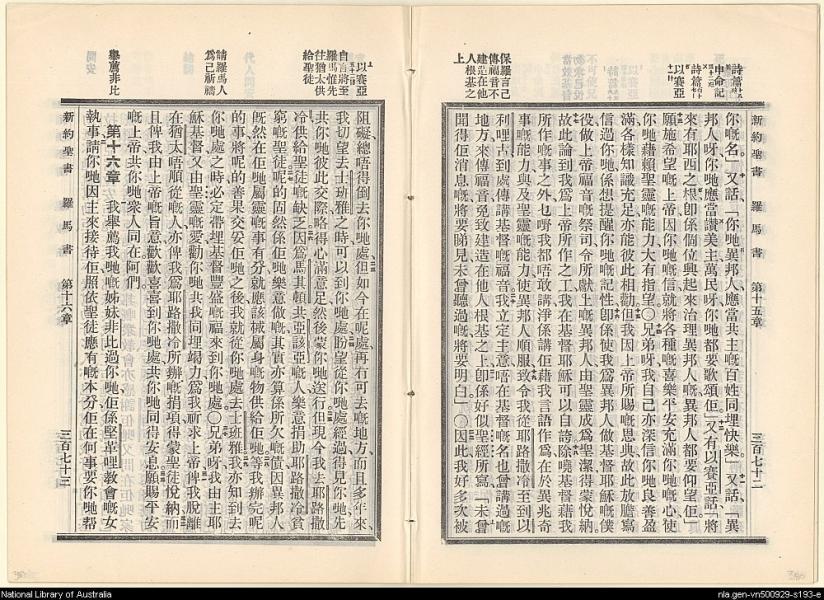 詩篇
申命記
詩篇
以賽亞
保羅言己
傳福音不
建造在他
人根基之
上
新約聖書 羅馬書 第十五章 三百七十二
你嘅名」又話「你哋異邦人應當共主嘅百姓同埋快樂。」又話「異
邦人呀你哋應當讚美主萬民呀你哋都要歌頌佢」又有以賽亞話「將
來有耶西之根卽係個位興起來治理異邦人嘅異邦人都要仰望佢」
願施希望嘅上帝因你哋嘅信就將各種嘅喜樂平安充滿你哋嘅心使
你哋藉賴聖靈嘅能力大有指望〇兄弟呀我自己亦深信你哋良善盈
滿各樣知識充足亦能彼此相勸但我因上帝所賜嘅恩典故此放膽寫
信過你哋係想提醒你哋嘅記性卽係使我爲異邦人做基督耶穌嘅僕
役做上帝福音嘅祭司令所獻上嘅異邦人由聖靈成爲聖潔得蒙悅納
故此論到我爲上帝所作之工我在基督耶穌可以自誇除嘵基督藉我
所作嘅事之外乜嘢我都唔敢講淨係講佢藉我言語作爲在於異兆奇
事嘅能力與及聖靈嘅能力使異邦人順服致令我從耶路撒冷至到以
利哩古到處傳講基督嘅福音我立定主意唔在基督嘅名也曾講過嘅
地方來傳福音免致建造在他人根基之上卽係好似聖經所寫「未曾
聞得佢消息嘅將要睇見未曾聽過嘅將要明白」〇因此我好多次被
以賽亞
自言將至
羅馬惟先
往猶太供
給聖徒
請羅馬人
爲己祈禱
舉薦非比
阻礙總唔得倒去你哋處但如今在呢處再有可去嘅地方而且多年來
我切望去士班雅之時可以到你哋處盼望從你哋處經過得見你哋先
共你哋彼此交際略得心滿意足然後蒙你哋送行但現今我去耶路撒
冷供給聖徒嘅缺乏因爲馬其頓共亞該亞嘅人樂意捐助耶路撒冷貧
窮嘅聖徒呢的固然係佢哋樂意做嘅其實亦算係所欠嘅債因異邦人
旣然在佢哋屬靈嘅事有分就應該椷屬身嘅物供給佢哋等我辦完呢
的事將呢的善果交妥佢哋之後我就從你哋處去士班雅我亦知到去
你哋處之時必定帶埋基督豐盛嘅福來到你哋處〇兄弟呀我由主耶
穌基督又由聖靈嘅愛勸你哋共我同埋竭力爲我祈求上帝俾我脫離
在猶太唔順從嘅人亦俾我爲耶路撒冷所辦嘅捐項得蒙聖徒悅納而
且俾我由上帝嘅旨意歡歡喜喜到你哋處共你哋同得安息願賜平安
嘅上帝共你哋衆人同在阿們。
第十六章 我舉薦我哋嘅姊妹非比過你哋佢係堅革哩教會嘅女
執事請你哋因主來接待佢照依聖徒應有嘅本分佢在何事要你哋帮
新約聖書 羅馬書 第十六章 三百七十三
National Library of Australia
nla.gen-vn500929-s193-e